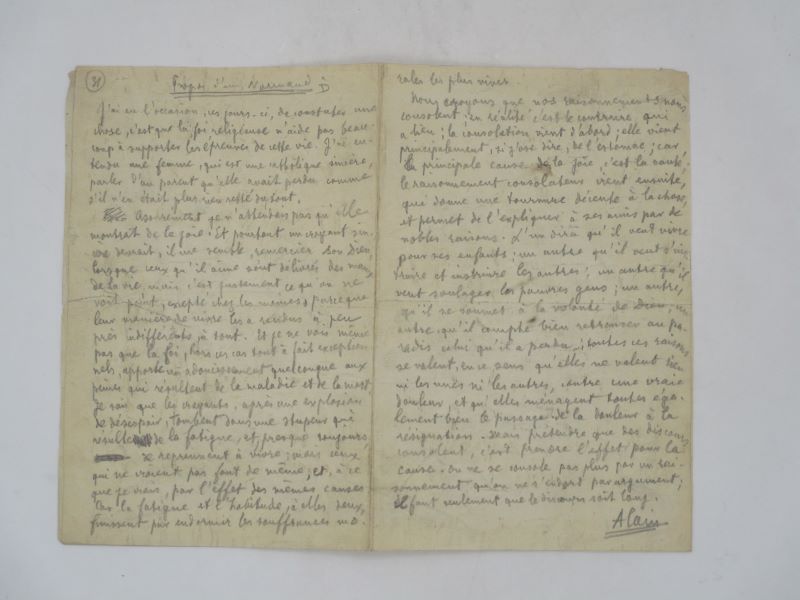 31
Propos d'un Normand
J'ai eu l'occasion, ces jours-ci, de constater une
chose, c'est que la foi religieuse n'aide pas beau-
coup à supporter les épreuves de cette vie. J'ai en-
tendu une femme, qui est une catholique sincère,
parler d'un parent qu'elle avait perdu comme
s'il n'en était plus rien resté du tout.
Assurément je n'attendais pas qu'elle
montrât de la joie. Et pourtant un croyant sin-
cère devrait, il me semble, remercier son Dieu,
lorsque ceux qu'il aime sont délivrés des maux
de la vie, mais c'est justement ce qu'on ne
voit point, excepté chez les moines, parce que
leur manière de vivre les a rendus à peu
près indifférents à tout. Et je ne vois même
pas que la foi, hors ces cas tout à fait exception-
nels, apporte un adoucissement quelconque aux
peines qui résultent de la maladie et de la mort.
Je sais que les croyants, après une explosion
de désespoir, tombent dans une stupeur qui
résulte de la fatigue, et, presque toujours,
se reprennent à vivre; mais ceux
qui ne croient pas font de même, et, à ce
que je crois, par l'effet des mêmes causes
Car la fatigue et l'habitude, à elles deux,
finissent par endormir les souffrances mo-
rales les plus vives.
Nous croyons que nos raisonnements nous
consolent; en réalité c'est le contraire qui
a lieu; la consolation vient d'abord; elle vient
principalement, si j'ose dire, de l'estomac; car
la principale cause de la joie, c'est la santé.
le raisonnement consolateur vient ensuite,
qui donne une tournure décente à la chose,
et permet de l'expliquer à ses amis par de
nobles raisons. L'un dira qu'il veut vivre
pour ses enfants; un autre qu'il veut s'ins-
truire et instruire les autres; un autre qu'il
veut soulager les pauvres gens; un autre,
qu'il se soumet à la volonté de Dieu; un
autre, qu'il compte bien retrouver au pa-
radis celui qu'il a perdu; toutes ces raisons
se valent, en ce sens qu'elles ne valent rien
ni les unes ni les autres, contre une vraie
douleur, et qu'elles ménagent toutes éga-
lement bien le passage de la douleur à la
résignation. Mais prétendre que des discours
consolent, c'est prendre l'effet pour la
cause. On ne se console pas plus par un rai-
sonnement qu'on ne s'endort par argument;
il faut seulement que le discours soit long.
Alain